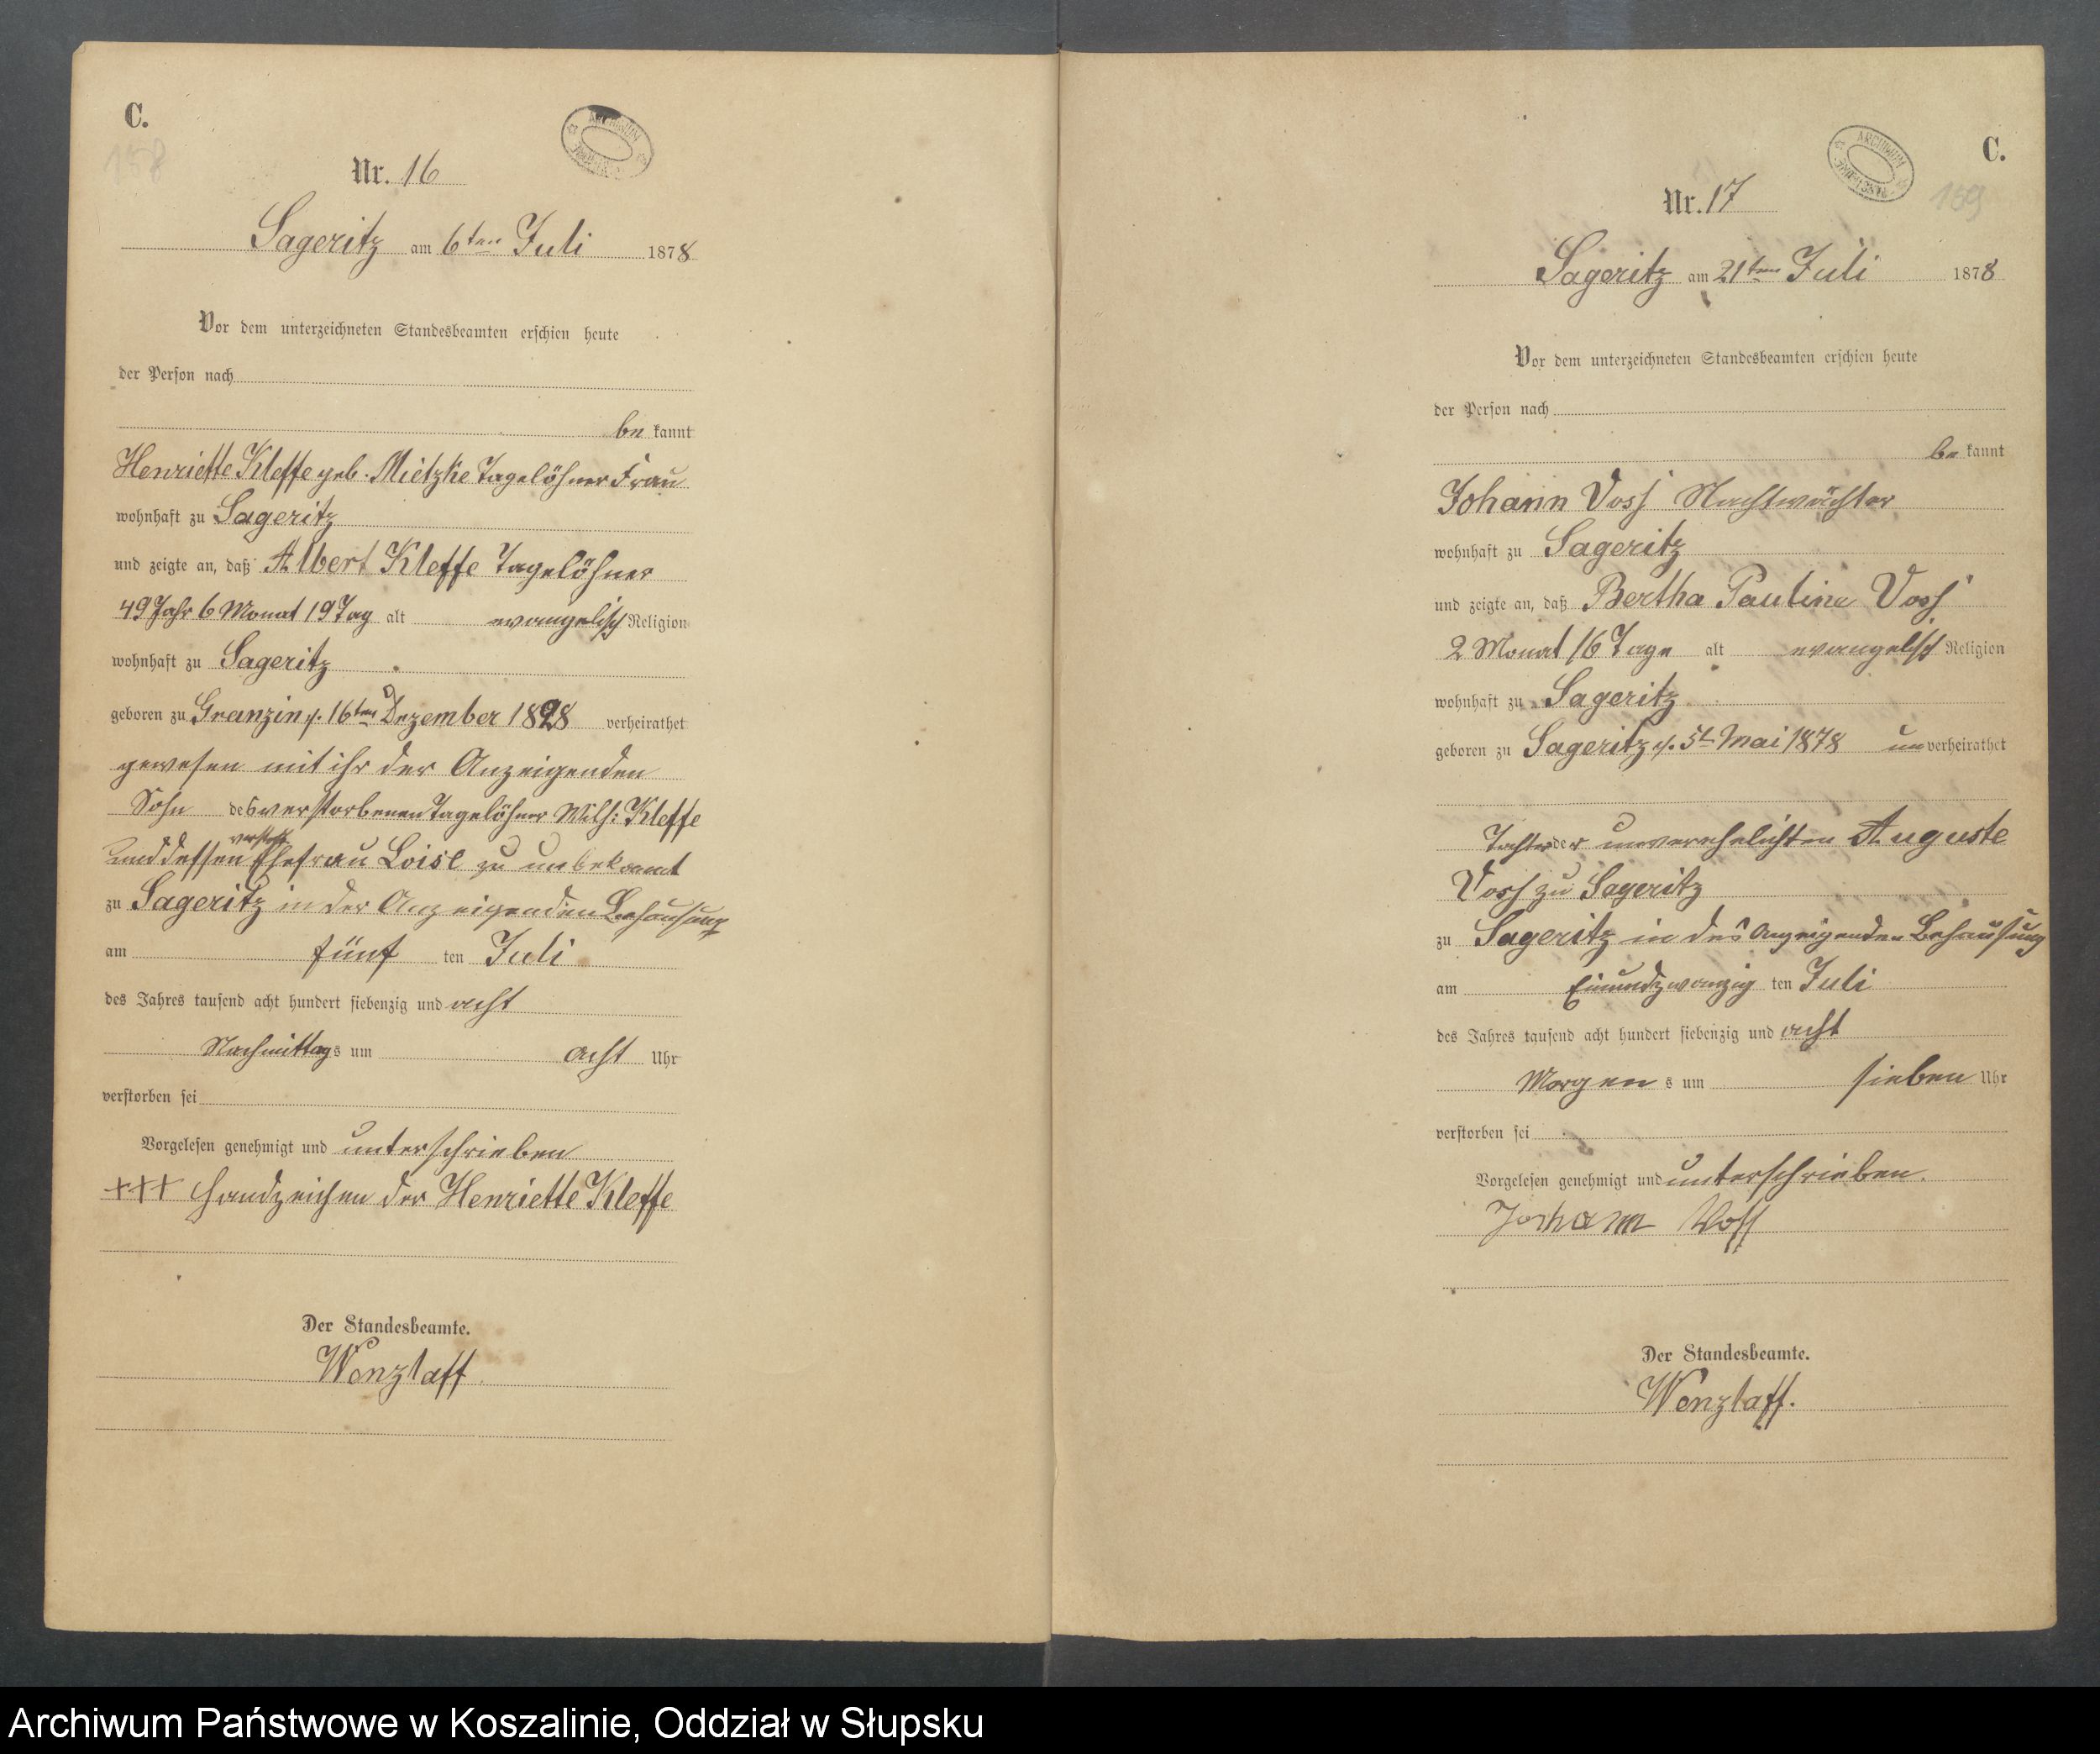 C.
158
Nr. 16
ARCHIWUM
Sageritz am 6ten Juli 1878
Vor dem unterzeichneten Standesbeamten erschien heute
der Person nach
be kannt
Henriette Kleffe geb. Mietzke Tagelöhner Frau
wohnhaft zu Sageritz
und zeigte an, daß Albert Kleffe Tagelöhner
49 Jahr 6 Monat 19 Tag alt evangelisch Religion
wohnhaft zu Sageritz
geboren zu Granzin d. 16ten Dezember 1828 verheirathet
gewesen mit ihr der Anzeigenden
Sohn des verstorbenen Tagelöhner Wilh: Kleffe
und dessen verst. Ehefrau Loise zu unbekannt
zu Sageritz in der Anzeigenden Behausung
am fünf ten Juli
des Jahres tausend acht hundert siebenzig und acht
Nachmittags um acht Uhr
verstorben sei
Vorgelesen genehmigt und unterschrieben
+++ Handzeichen der Henriette Kleffe
Der Standesbeamte.
Wenzlaff
C.
159
Nr. 17
ARCHIWUM
Sageritz am 21ten Juli 1878
Vor dem unterzeichneten Standesbeamten erschien heute
der Person nach
be kannt
Johann Voss Nachtwächter
wohnhaft zu Sageritz
und zeigte an, daß Bertha Pauline Voss
2 Monat 16 Tage alt evangelisch Religion
wohnhaft zu Sageritz
geboren zu Sageritz d. 5t Mai 1878 unverheirathet
Tochter der unverehelichten Auguste
Voss zu Sageritz
zu Sageritz in des Anzeigenden Behausung
am Einundzwanzig ten Juli
des Jahres tausend acht hundert siebenzig und acht
Morgen s um sieben Uhr
verstorben sei
Vorgelesen genehmigt und unterschrieben.
Johann Voss
Der Standesbeamte.
Wenzlaff.
Archiwum Państwowe w Koszalinie, Oddział w Słupsku